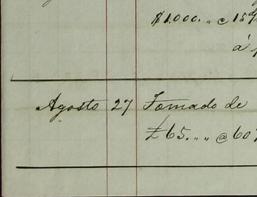 $1.000. " @ 15
á
Agosto 27 Tomado de
£65. " " @ 60